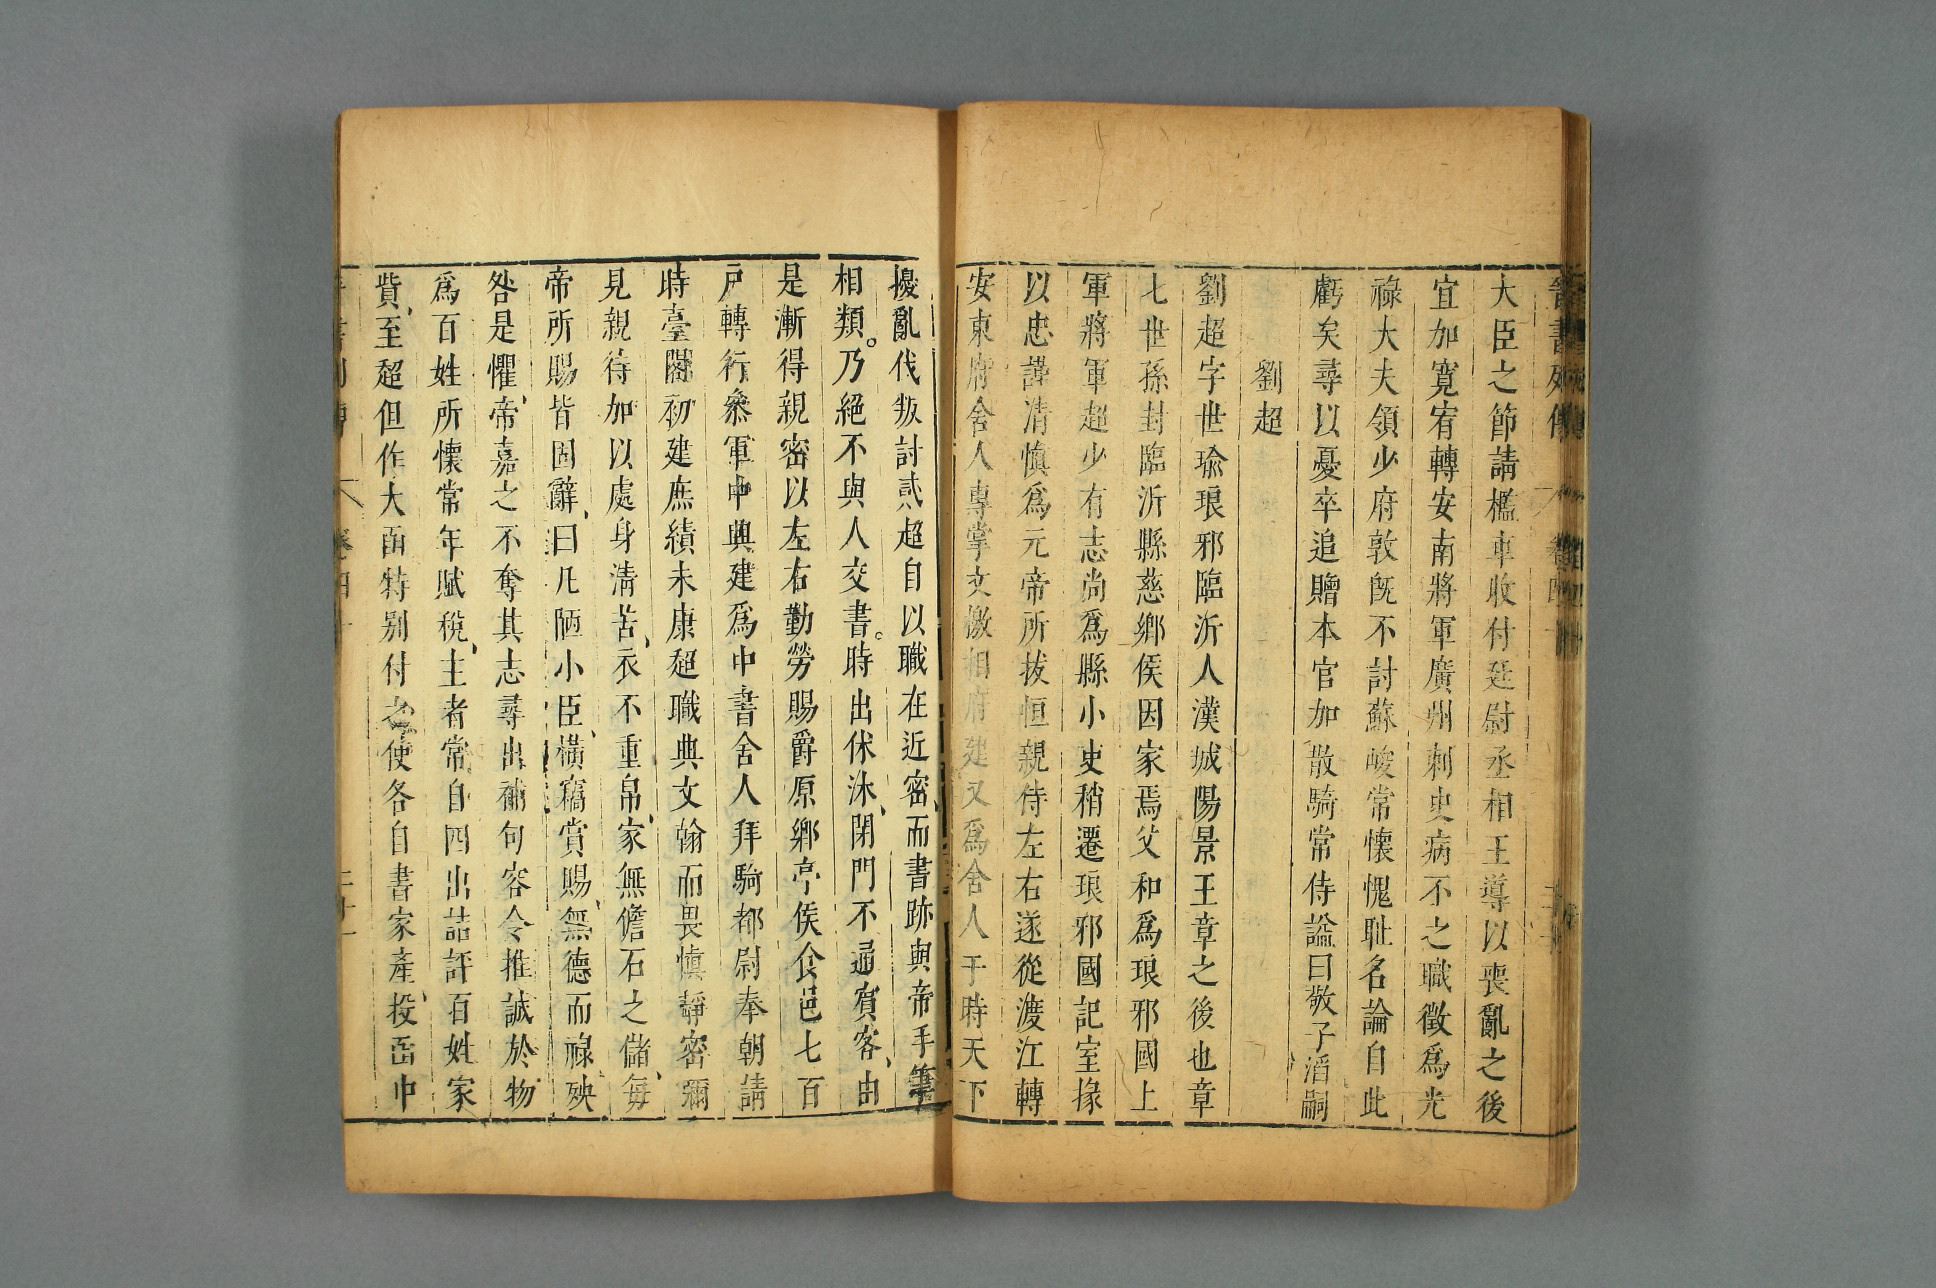 大臣之節請檻車收付廷尉丞相王導以喪亂之後
宜加寬宥轉安南將軍廣州刺史病不之職徵為光
祿大夫領少府敦旣不討蘇峻常懷愧耻名論自此
虧矣尋以憂卒追贈本官加散騎常侍謚曰敬子滔嗣
劉超
劉超字世瑜琅邪臨沂人漢城陽景王章之後也章
七世孫封臨沂縣慈鄉侯因家焉父和爲琅邪國上
軍將軍超少有志尚爲縣小史稍遷琅邪國記室掾
以忠謹清慎爲元帝所拔恒親侍左右遂從渡江轉
安東府舍人專掌文檄相府建又爲舍人于時天下
擾亂伐叛討貳超自以職在近密、而書跡與帝手筆
相類。乃絕不與人交書。時出休沐、閉門不通賓客、由
是漸得親密以左右勤勞賜爵原鄉亭侯食邑七百
戸轉行叅軍中興建爲中書舍人拜騎都尉奉朝請
時臺閣初建庶績未康超職典文翰而畏慎靜密彌
見親待加以處身清苦、衣不重帛、家無儋石之儲、每
帝所賜皆固辭、曰凡陋小臣、橫竊賞賜、無德而祿殃
咎是懼、帝嘉之不奪其志尋出補句容令推誠於物
爲百姓所懷常年賦稅、主者常自四出詰評百姓家
貲、至超但作大函特别付之使各自書家產、投函中